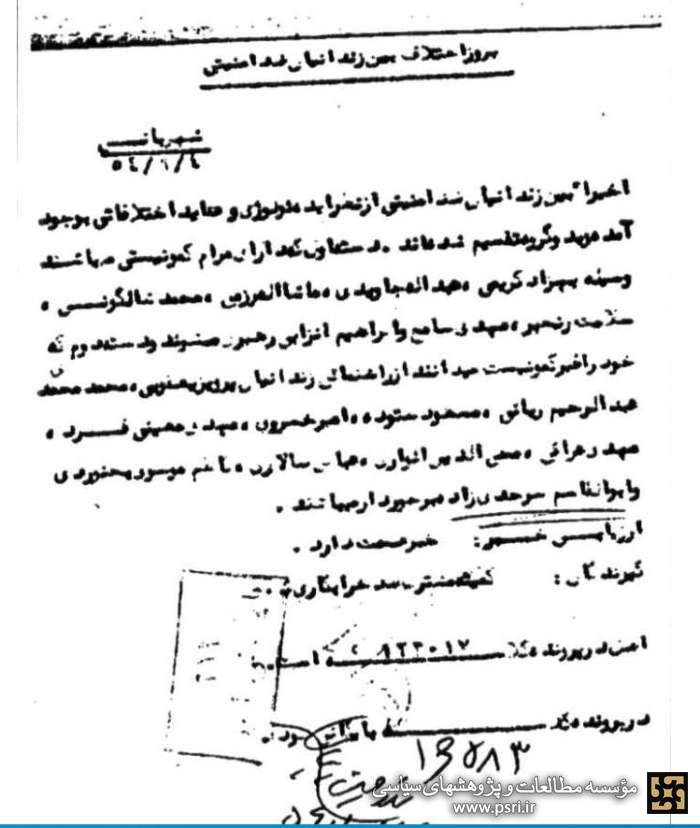 بروز اختلاف بین زندانیان ضد امنیتی
شهربانی
۵۴/۶/۴
اخیرا بین زندانیان ضد امنیتی از نظر ایدئولوژی و عقاید اختلافاتی بوجود
آمده و بدو گروه تقسیم شده‌اند . دسته اول که دارای مرام کمونیستی میباشند
وسیله بهزاد کریمی ، عبداله جاویدی ، ماشااله رزمی ، محمد شالگونی ،
سلامت رنجبر ، مهدی سامع و ابراهیم انزابی رهبری میشوند و دسته دوم که
خود را غیر کمونیست میدانند از راهنمائی زندانیان پرویز یعقوبی ، محمد محمدی
عبدالرحیم ، مسعود ستوده ، امیر خسروی ، مهدی حسینی فرد ،
مهدی عراقی ، محی الدین انواری ، عباس سالاری ، کاظم موسوی بجنوردی
و ابوالقاسم سرحدی زاده برخوردار میباشند .
ارزیابی خبر : خبر صحت دارد .
گیرندگان : کمیته مشترک ضد خرابکاری
اصل در پرونده کلاسه ۹۲۳۰۱۷ است
در پرونده کلاسه بایگانی شود
۱۶۵۸۳
مؤسسه مطالعات و پژوهشهای سیاسی
www.psri.ir